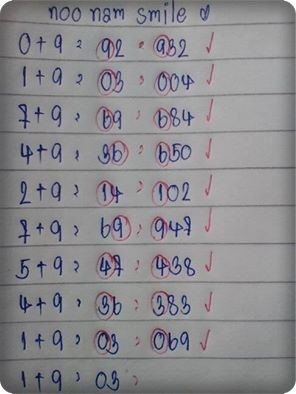 noo nam smile
0+9 = 92 = 932 ✓
1+9 = 03 = 004 ✓
7+9 = 69 = 684 ✓
4+9 = 36 = 650 ✓
2+9 = 14 = 102 ✓
7+9 = 69 = 947 ✓
5+9 = 47 = 438 ✓
4+9 = 36 = 383 ✓
1+9 = 03 = 069 ✓
1+9 = 03 =